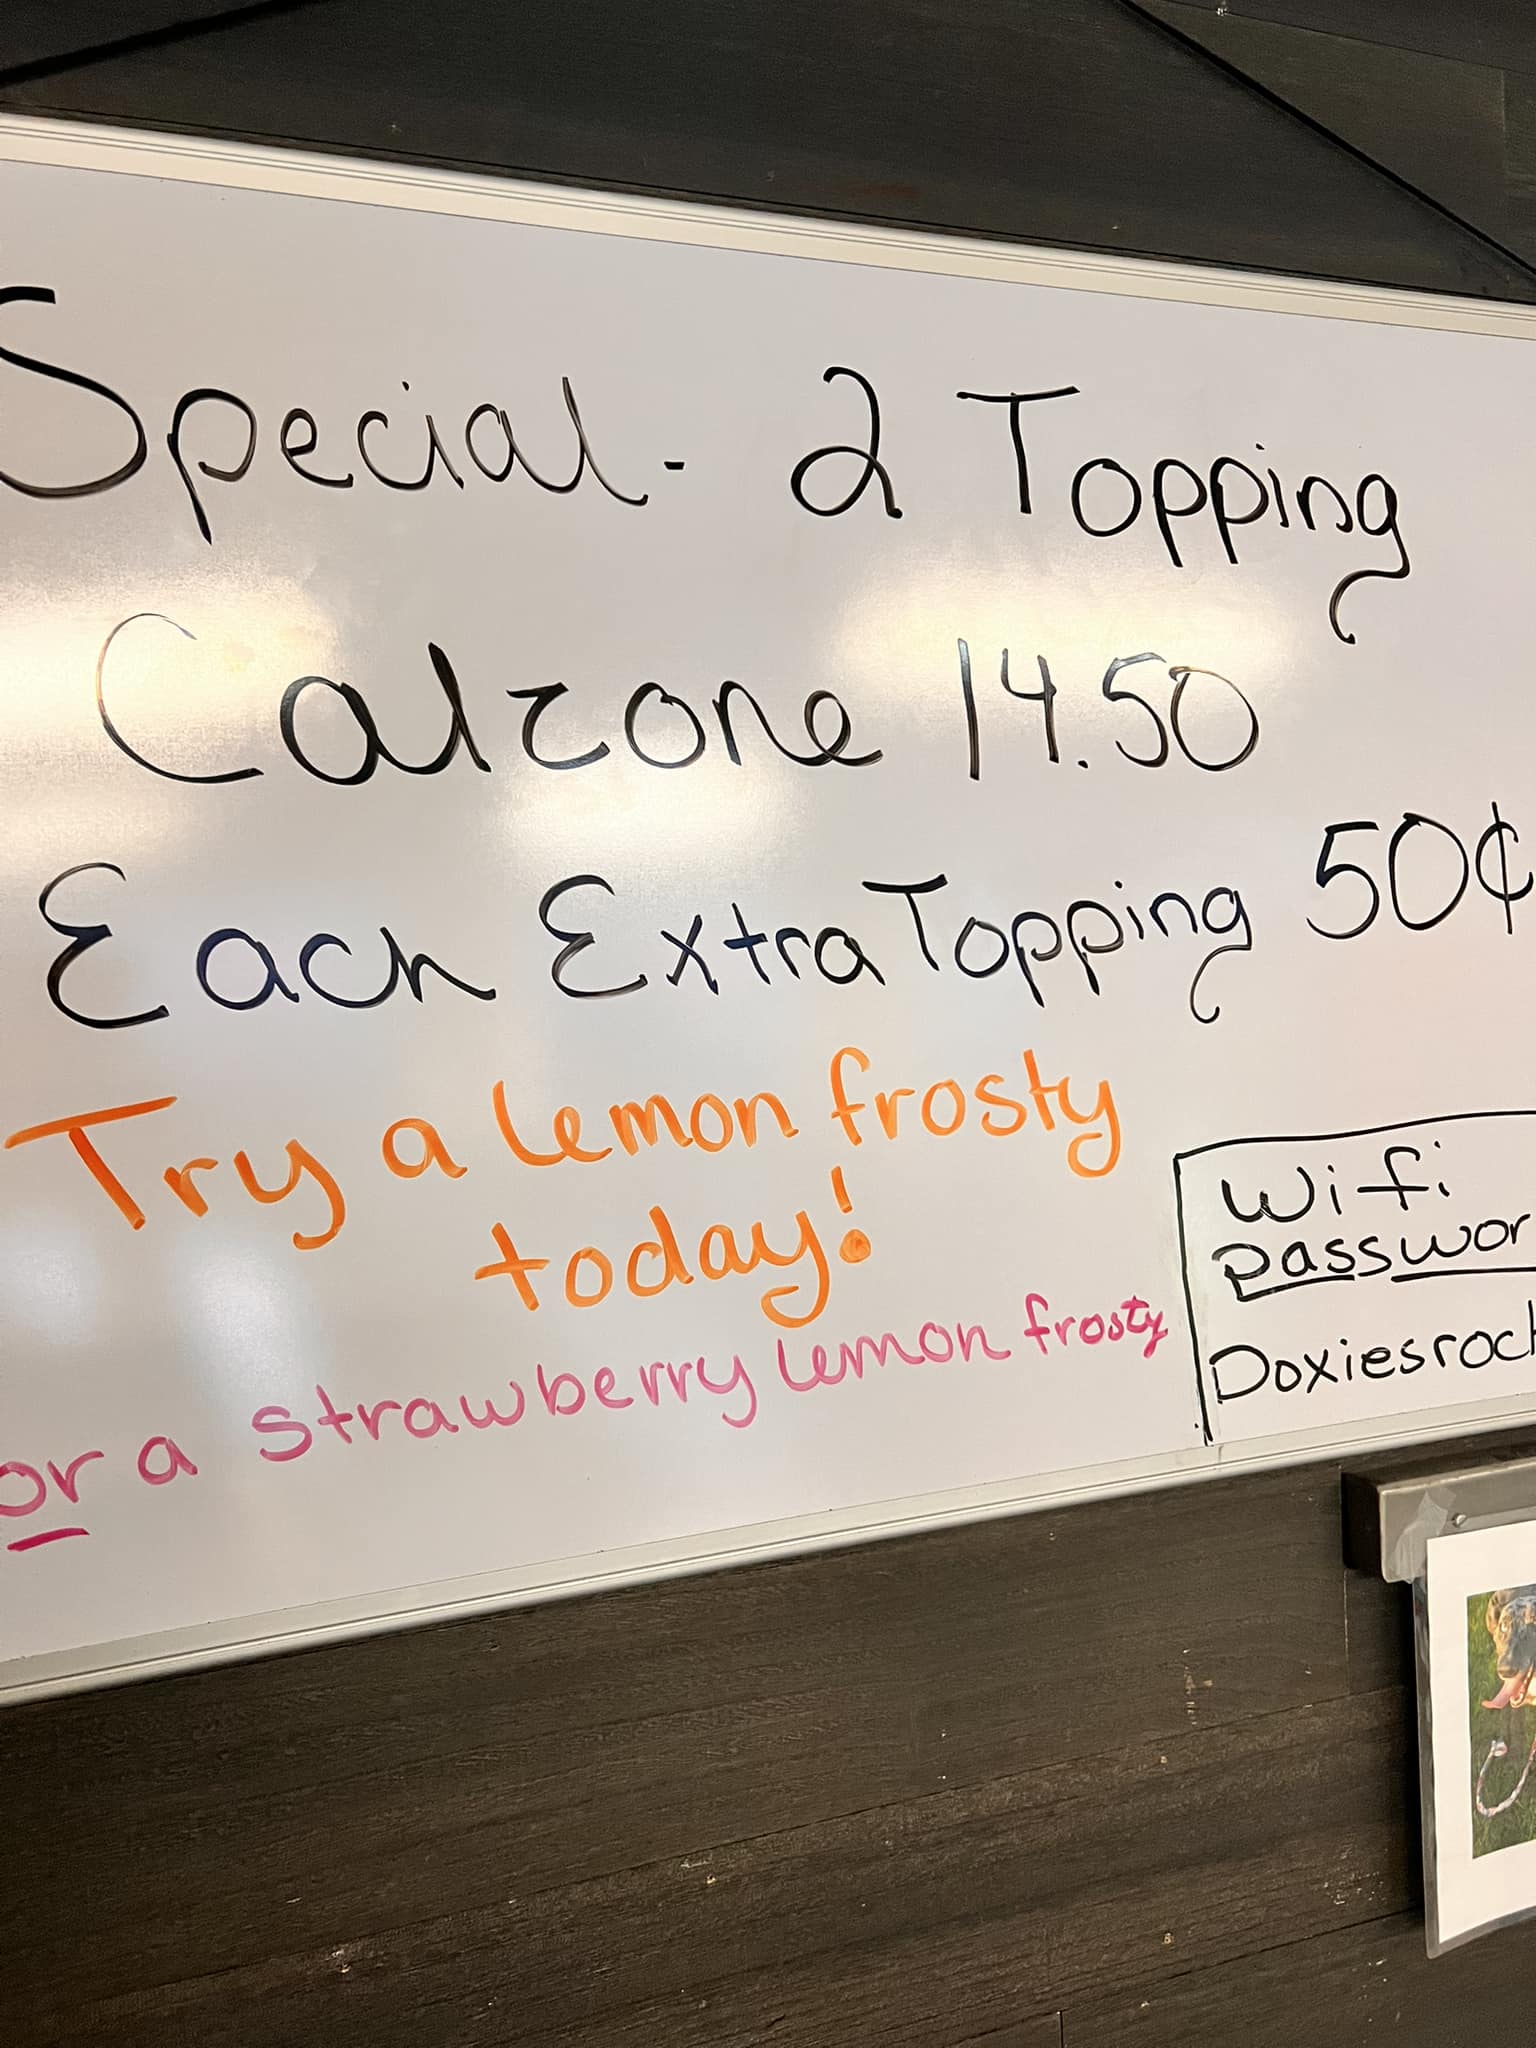 Special - 2 Topping
Calzone 14.50
Each Extra Topping 50¢
Try a lemon frosty
today!
or a strawberry lemon frosty
Wifi
passwor
Doxiesroc